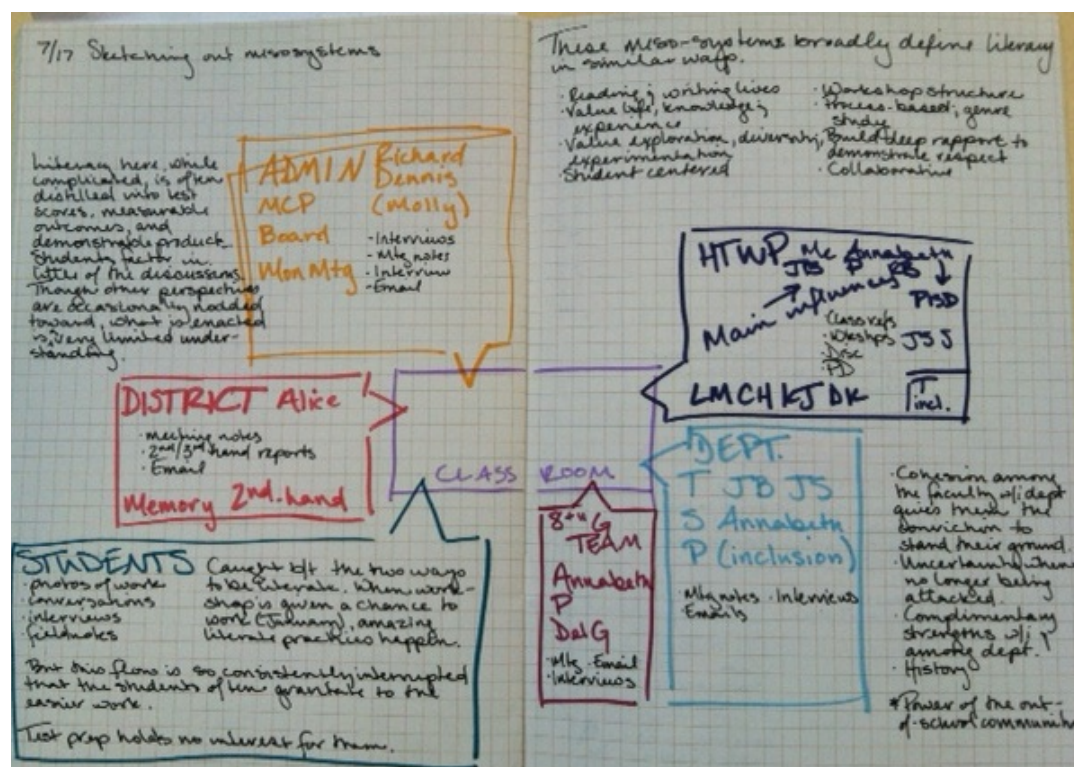 7/17 Sketching out mesosystems
Literacy here, while
complicated, is often
distilled into test
scores, measurable
outcomes, and
demonstrable product.
Students factor in
little of the discussions.
Though other perspectives
are occasionally nodded
toward, what is enacted
is very limited under-
standing.
ADMIN Richard
Dennis
MCP (Molly)
Board
Mon Mtg
- Interviews
- Mtg notes
- Interview
- Email
DISTRICT Alice
· meeting notes
· 2nd/3rd hand reports
· Email
Memory 2nd-hand
CLASS ROOM
STUDENTS
· photos of work
· conversations
· interviews
· fieldnotes
Caught b/t the two ways
to be literate. When work-
shop is given a chance to
work (January), amazing
literate practices happen.
But this flow is so consistently interrupted
that the students often gravitate to the
easier work.
Test prep holds no interest for them.
These meso-systems broadly define literacy
in similar ways.
· Reading & writing lives
· Value life, knowledge &
experience
· Value exploration, diversity,
experimentation
· Student centered
· Workshop structure
· Process-based, genre
study
· Build deep rapport to
demonstrate respect
· Collaborative
HTWP Mc Annabeth
JB P RS
PISD
Main influences
· Class refs
· Wkshps
· Disc
· PD
JSJ
LMCH KJ DK
T incl.
DEPT.
T JB JS
S Annabeth
P (inclusion)
· Mtg notes · Interviews
Emails
8th G
TEAM
Annabeth
P
DalG
· Mtg · Email
· Interviews
· Cohesion among
the faculty w/i dept
gives them the
conviction to
stand their ground.
· Uncertainty when
no longer being
attacked.
· Complimentary
strengths w/i &
among dept.
· History
* Power of the out-
of-school community